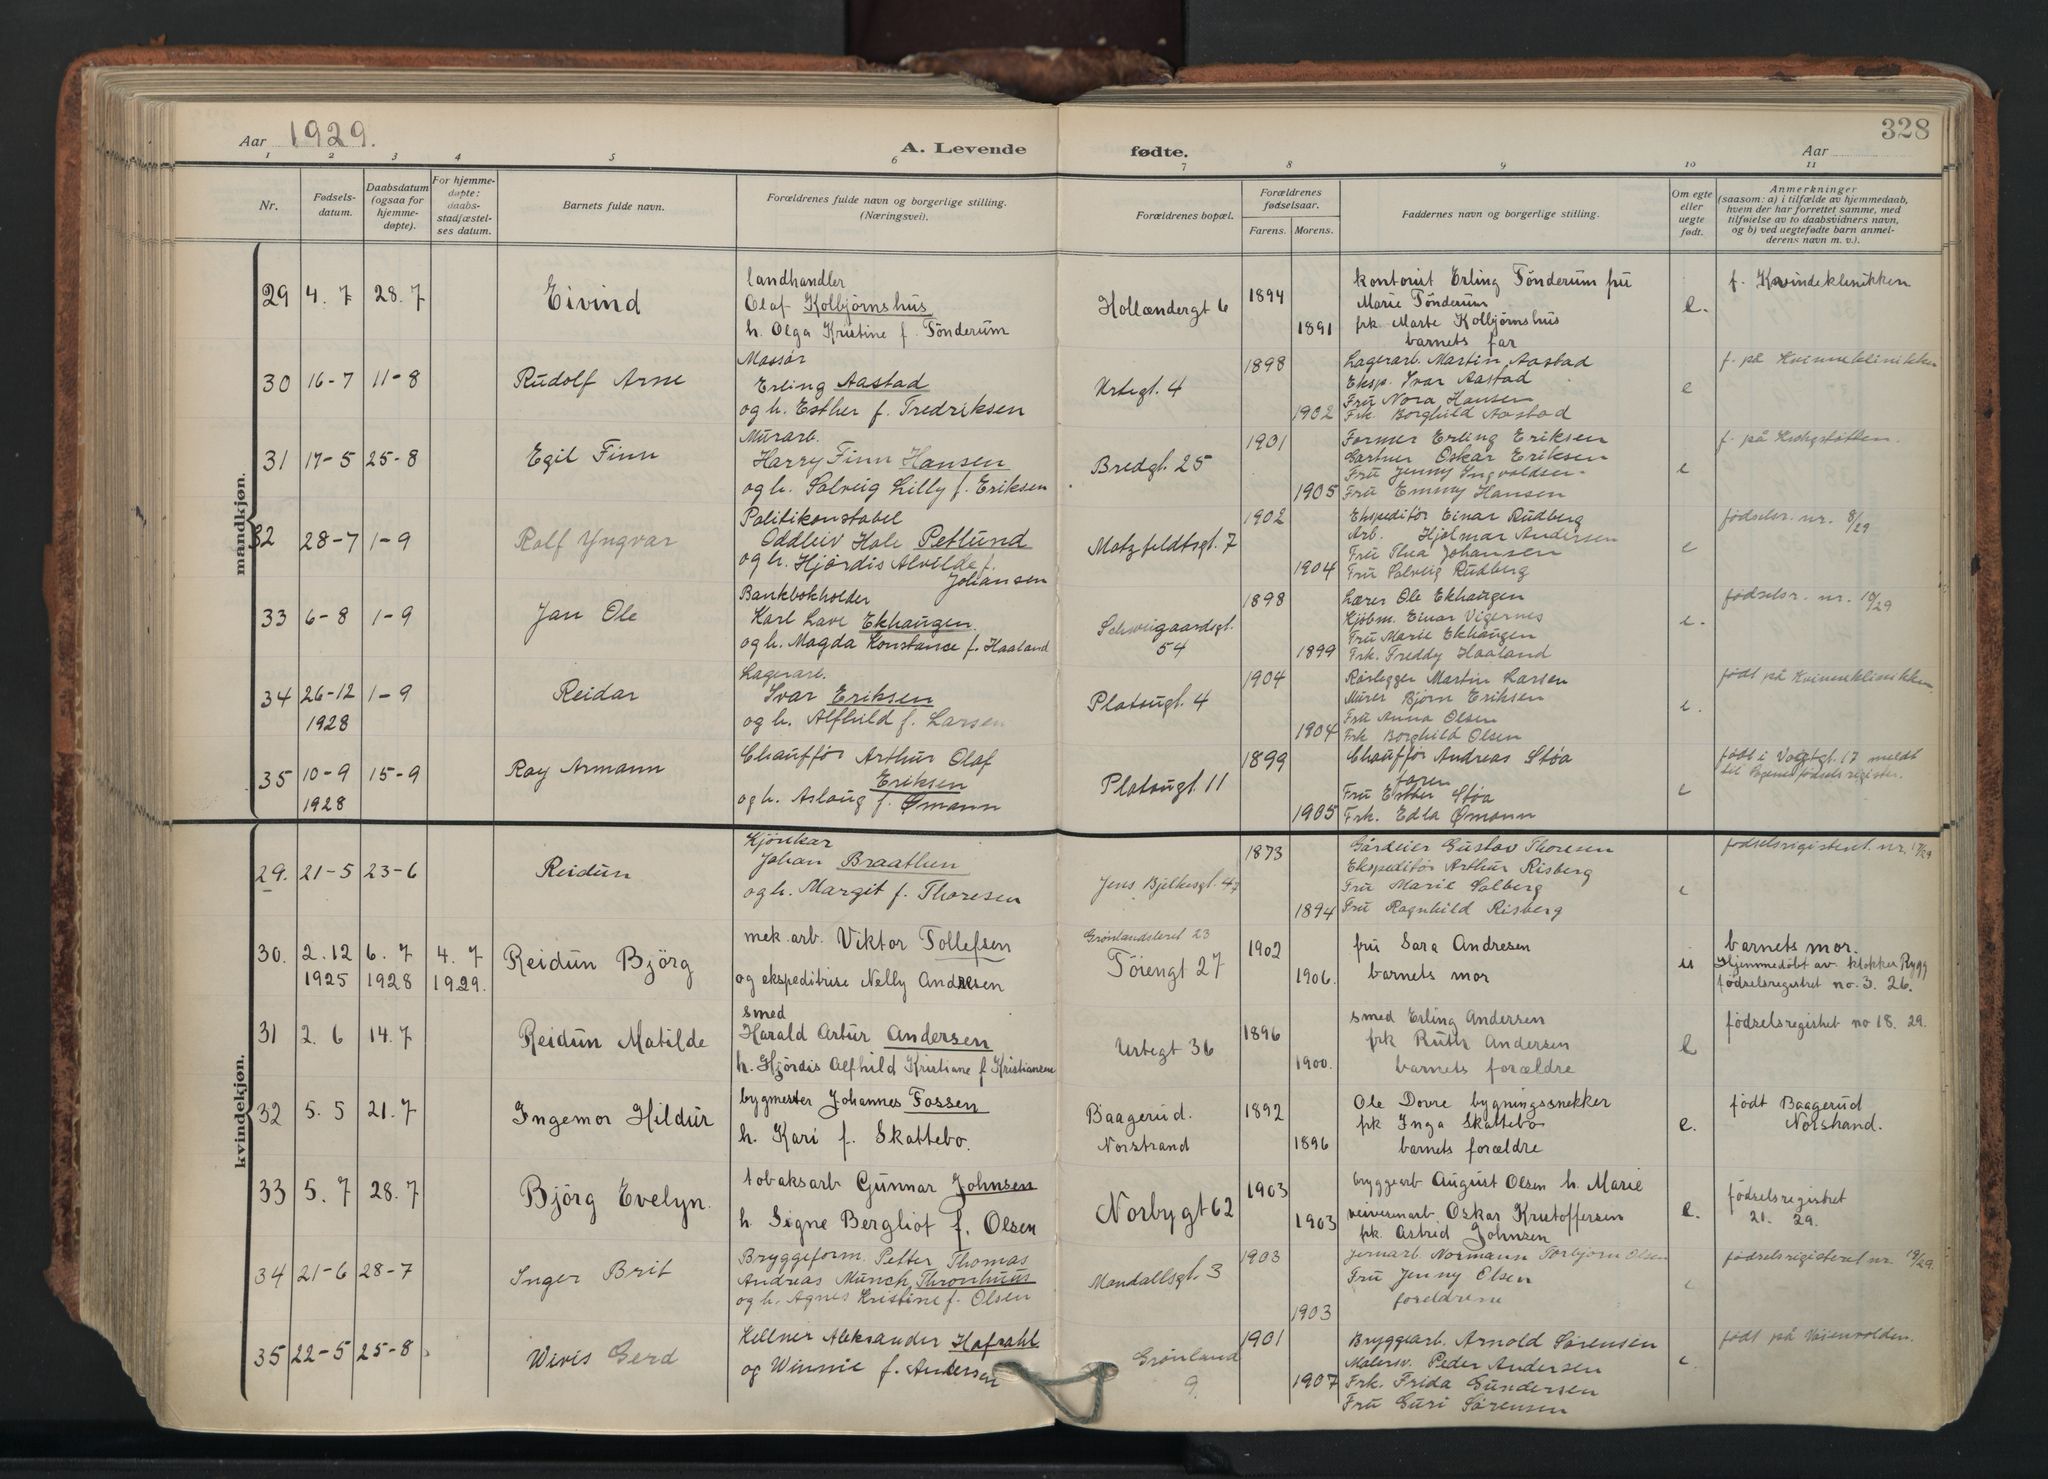 Aar 1929.
A. Levende fødte.
328
Aar
1 2 3 4 5 6 7 8 9 10 11
Nr.
Fødsels-
datum.
Daabsdatum
(ogsaa for
hjemme-
døpte).
For hjemme-
døpte:
daabs-
stadfæstel-
ses datum.
Barnets fulde navn.
Forældrenes fulde navn og borgerlige stilling.
(Næringsvei).
Forældrenes bopæl.
Forældrenes
fødselsaar.
Farens. Morens.
Faddernes navn og borgerlige stilling.
Om egte
eller
uegte
født.
Anmerkninger
(saasom: a) i tilfælde av hjemmedaab,
hvem der har forrettet samme, med
tilføielse av to daabsvidners navn,
og b) ved uegtefødte barn anmel-
derens navn m. v.).
mandkjøn.
29 4. 7 28. 7 Eivind
landhandler
Olaf Kolbjørnshus
h. Olga Kristine f. Tönderum
Hollændergt 6
1894
1891
kontorist Erling Tönderum fru
Marie Tönderum
frk Marte Kolbjørnshus
barnets far
e.
f. Kvindeklinikken
30 16-7 11-8 Rudolf Arne
Massør
Erling Aastad
og h. Esther f. Fredriksen
Urtegt. 4
1898
1902
Lagerarb. Martin Aastad
Eksp. Ivar Aastad
Fru Nora Hansen
Frk. Borghild Aastad
e
f. på Kvinneklinikken
31 17-5 25-8 Egil Finn
Murarb.
Harry Finn Hansen
og h. Solveig Lilly f. Eriksen
Bredgt. 25
1901
1905
Former Erling Eriksen
Gartner Oskar Eriksen
Fru Jenny Ingvoldsen
Fru Emmy Hansen
e
f. på
32 28-7 1-9 Rolf Yngvar
Politikonstabel
Oddleiv Hole Petlund
og h. Hjørdis Alvilde f.
Johansen
Motzfeldtsgt. 7
1902
1904
Ekspeditør Einar Rudberg
Arb. Hjalmar Andersen
Fru Thea Johansen
Fru Solveig Rudberg
e
fødselsr. nr. 8/29
33 6-8 1-9 Jan Ole
Bankbokholder
Karl Lave Ekhaugen
og h. Magda Konstance f. Haaland
Schweigaardsgt.
54
1898
1899
Lærer Ole Ekhaugen
Kjøbm. Einar Vigernes
Fru Marie Ekhaugen
Frk. Freddy Haaland
e.
fødselsr. nr. 10/29
34 26-12 1-9 Reidar
1928
Lagerarb.
Ivar Eriksen
og h. Alfhild f. Larsen
Platougt. 4
1904
1904
Rørlegger Martin Larsen
Murer Bjørn Eriksen
Fru Anna Olsen
Frk Borghild Olsen
e.
født på Kvinneklinikken
35 10-9 15-9 Roy Armann
1928
Chauffør Arthur Olaf
Eriksen
og h. Aslaug f. Ømann
Platougt. 11
1899
1905
Chauffør Andreas Støa
faren
Fru Esther Støa
Frk. Edla Ømann
e
født i Vogtgt. 17 meldt
til fødselsregister.
kvindekjøn.
29. 21-5 23-6 Reidun
Kjørekar
Johan Braathen
og h. Margit f. Thoresen
Jens Bjelkesgt. 47
1873
1894
Gårdeier Gustav Thoresen
Ekspeditør Arthur Risberg
Fru Marie Solberg
Fru Ragnhild Risberg
e
fødselsregisteret nr. 17/29
30. 2. 12 6. 7 4. 7 Reidun Björg
1925 1928 1929.
mek. arb. Viktor Tollefsen
og ekspeditrise Nelly Andresen
Grønlandsleret 23
Töiengt 27
1902
1906.
fru Sara Andresen
barnets mor
u
barnets mor.
Hjemmedöbt av klokker Rygg
fødselsregistret no. 3. 26.
31 2. 6 14. 7 Reidun Matilde
smed
Harald Artur Andersen
h. Hjördis Alfhild Kristiane f Kristiansen
Urtegt 36
1896
1900.
smed Erling Andersen
frk Ruth Andersen
barnets forældre
e
fødselsregistret no 18. 29.
32 5. 5 21. 7 Ingemor Hildur
bygmester Johannes Fossen
h. Kari f. Skattebo.
Baagerud.
Norstrand
1892
1896
Ole Dovre bygningssnekker
frk Inga Skattebo
barnets forældre
e.
født Baagerud
Norstrand.
33 5. 7 28. 7 Björg Evelyn.
tobaksarb Gunnar Johnsen
h. Signe Bergliot f. Olsen
Norbygt 62
1903
1903
bryggearb August Olsen h. Marie
veivesenarb Oskar Kristoffersen
frk. Astrid Johnsen
e.
födselsregistret
21. 29.
34 21-6 28-7 Inger Brit
Bryggeform. Petter Thomas
Andreas Munch Thronhuus
og h. Agnes Kristine f. Olsen
Mandallsgt. 3
1903
1903
Jernarb. Normann Torbjørn Olsen
Fru Jenny Olsen
foreldrene
e
fødselsregisteret nr. 19/29.
35 22-5 25-8 Wivis Gerd
Kellner Aleksander Hafzahl
og Winnie f. Andersen
Grønland
9.
1901
1907
Bryggearb. Arnold Sørensen
Malersv. Peder Andersen
Frk. Frida Gundersen
Fru Guri Sørensen
e.
født på Voienvolden.